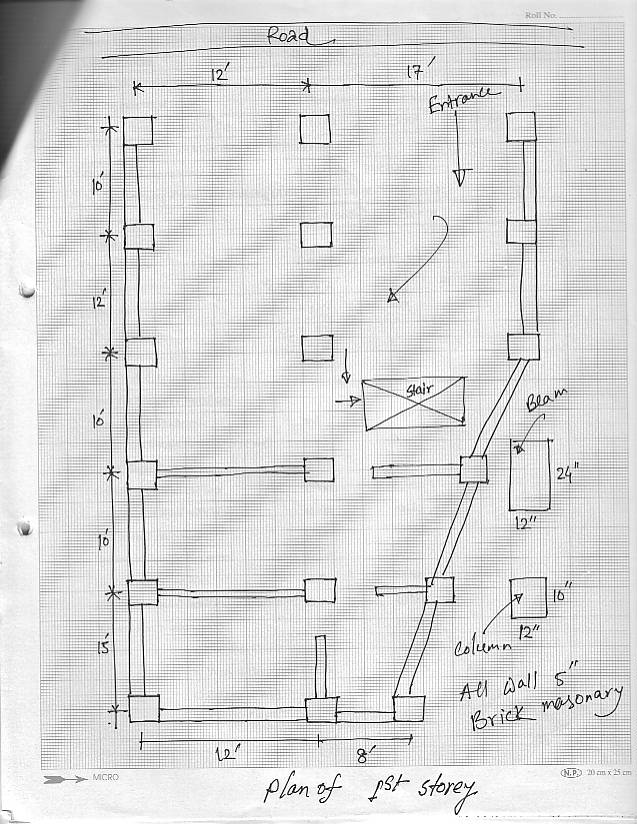 Roll No.
Road
12' 17'
Entrance
10'
12'
10'
10'
15'
Stair
Beam
24"
12"
10"
12"
Column
All Wall 5"
Brick masonary
12' 8'
MICRO
N.P. 20 cm x 25 cm
Plan of 1st storey